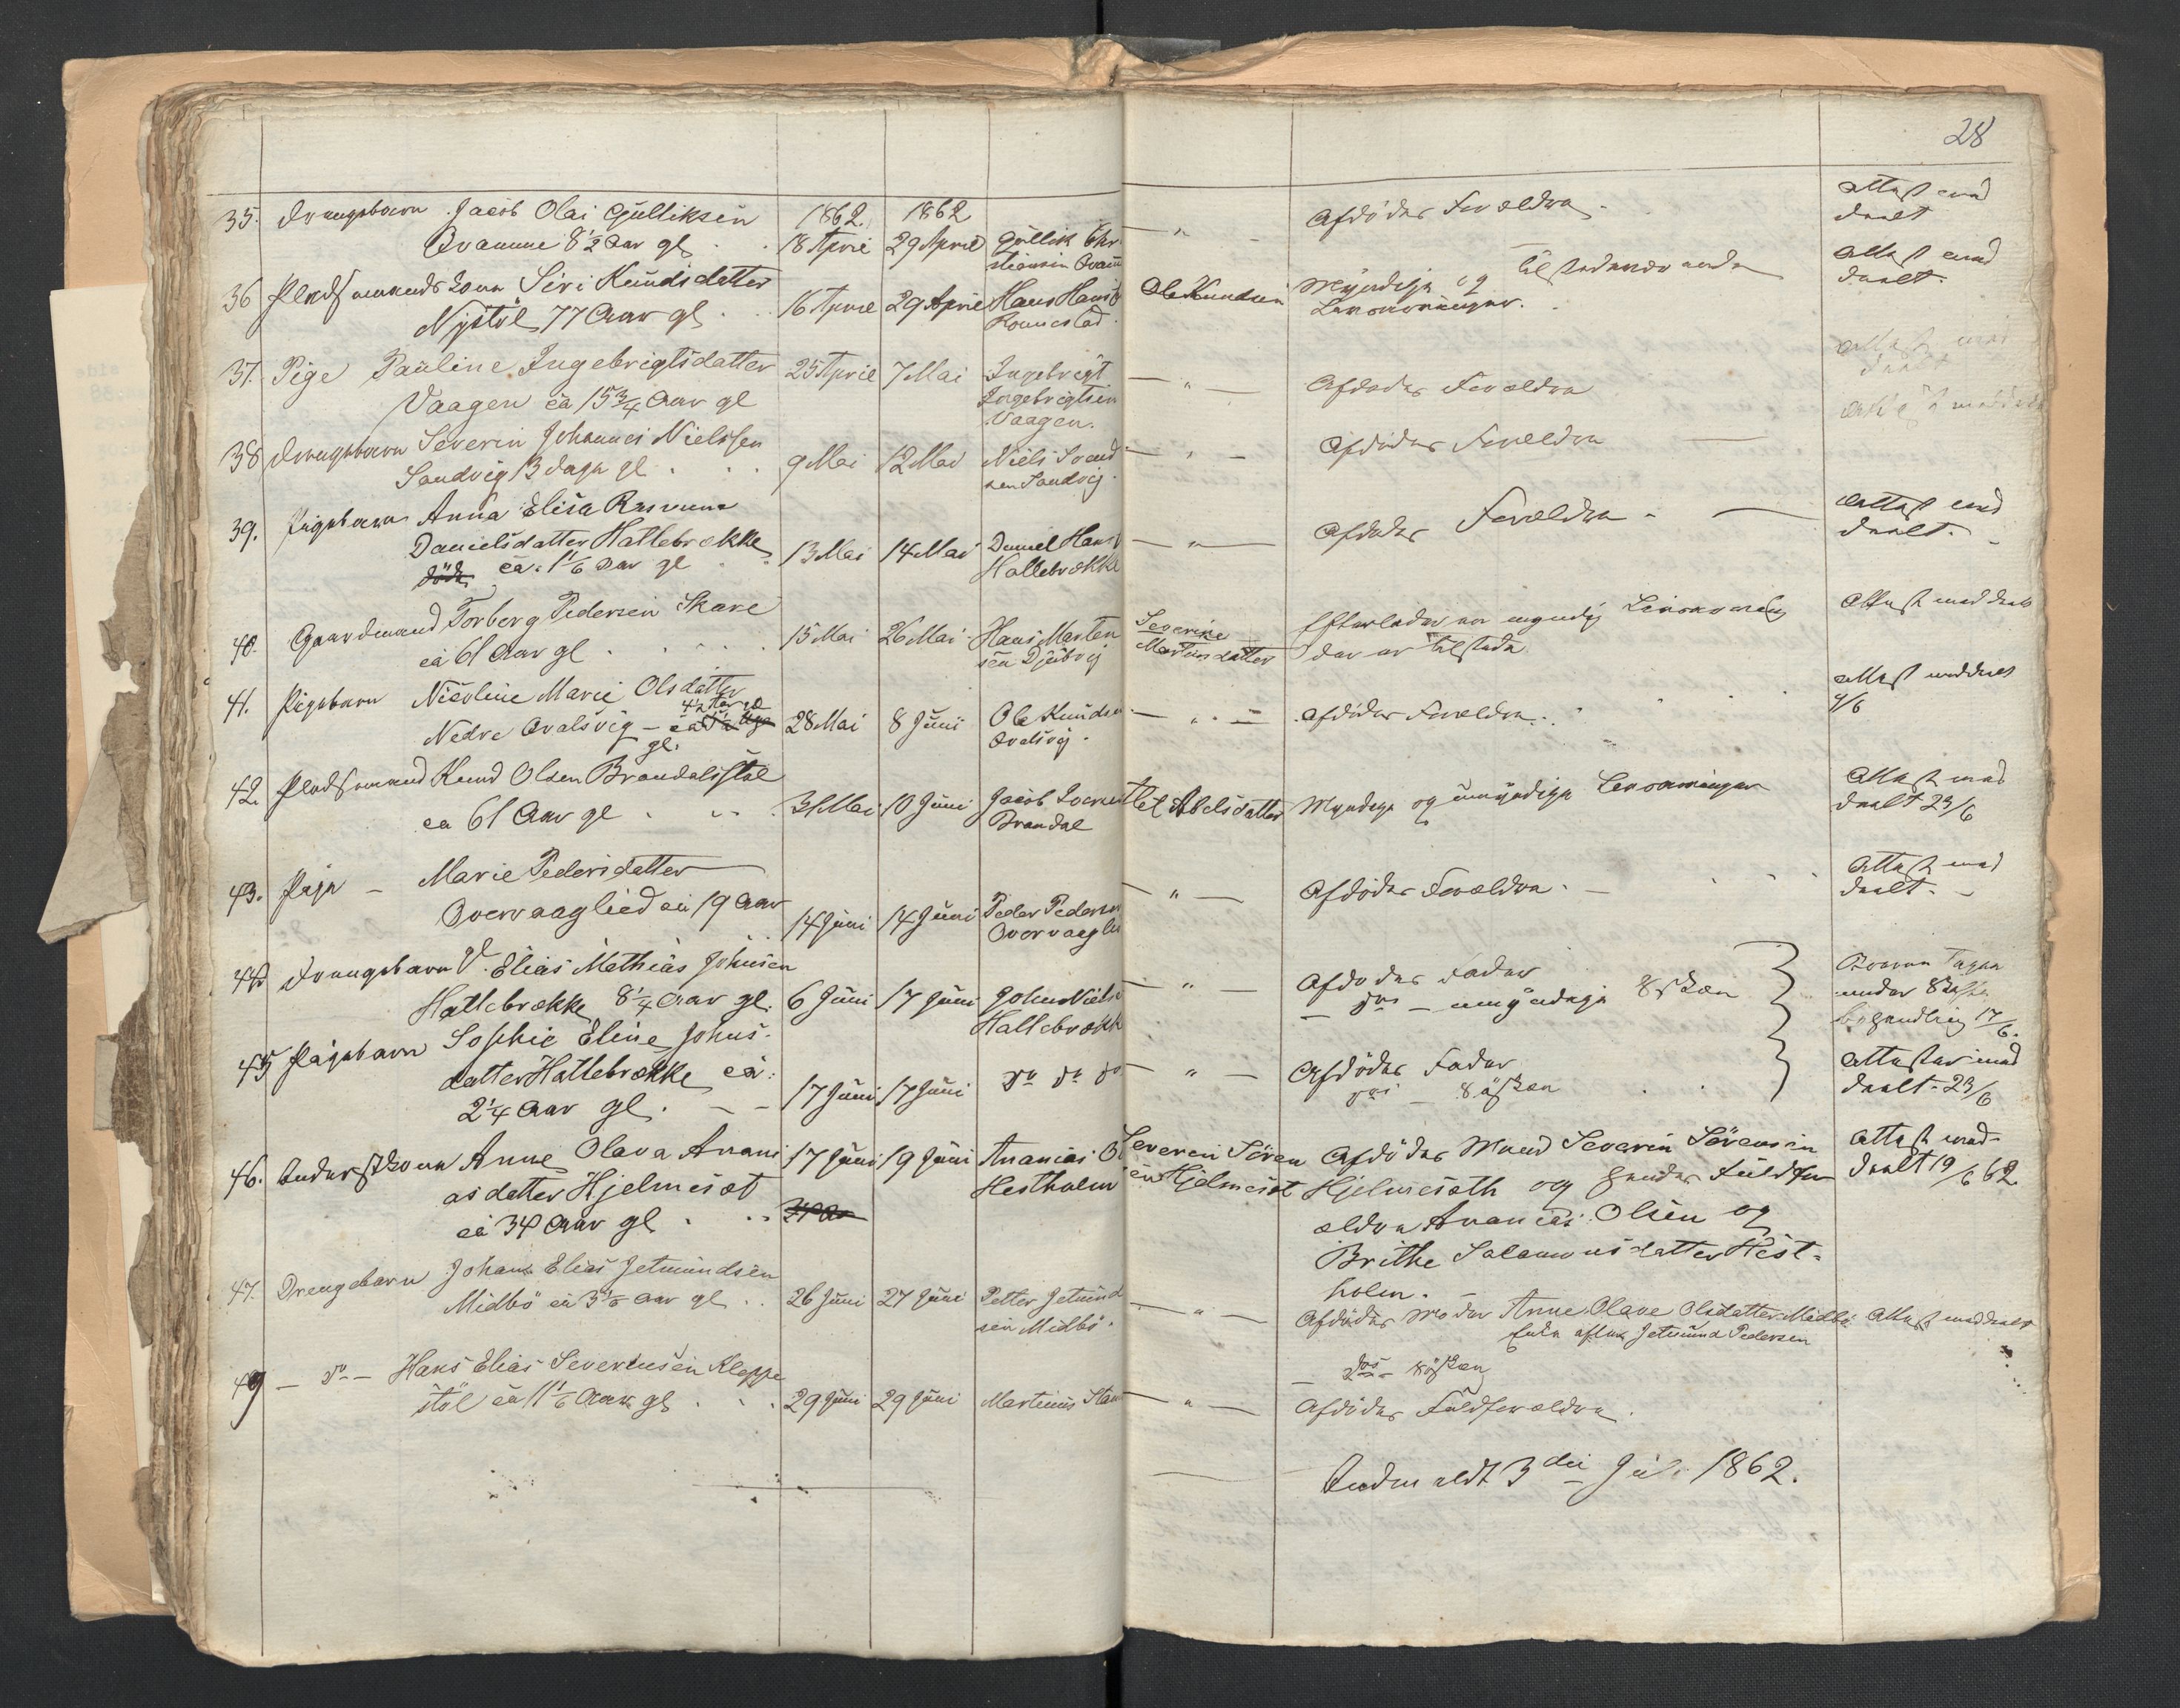 28
1862. 1862
35. Drengebarn Jacob Olai Gulliksen
Qvamme 8½ Aar gl. 18 April 29 April Gullik Chri-
stiansen Qvam — " — Afdödes Forældre. Attest med
deelt
36 Pladsmands Kone Siri Knudsdatter
Nystöl 77 Aar gl. 16 April 29 April Hans Hans
Rönnestad. Ole Knudsen Myndige og tilstedeværende
Livsarvinger. Attest med
deelt.
37. Pige Pauline Ingebrigtsdatter
Vaagen ca 15¾ Aar gl 25 April 7 Mai Ingebrigt
Ingebrigtsen
Vaagen. — " — Afdödes Forældre Attest med
deelt
38 Drengebarn Severin Johannes Nielssen
Sandvig 13 dage gl. 9 Mai 12 Mai Niels
sen Sandvig. — " — Afdödes Forældre —
39. Pigebarn Anna Elisa Rasmine
Danielsdatter Hallebrække
döde ca. 1⅙ Aar gl 13 Mai 14 Mai Daniel Hans
Hallebrække — " — Afdödes Forældre. — Attest med
deelt.
40. Gaardmand Torberg Pedersen Skare
ca 61 Aar gl. 15 Mai 26 Mai Hans Marten
sen Djubvig Severine
Martinsdatter Efterlader en myndig Livsarving
der er tilstede. Attest meddeelt
41. Pigebarn Nicoline Marie Olsdatter
Nedre Qvalsvig — ca
gl. 28 Mai 8 Juni Ole Knudsen
Qvalsvig. — " — Afdödes Forældre. Attest meddeelt
9/6
42. Pladsmand Knud Olsen Brandalsstöl
ca 61 Aar gl. 31 Mai 10 Juni Jacob
Brandal Abelsdatter Myndige og umyndige Livsarvinger Attest med
deelt 23/6
43. Pige — Marie Pedersdatter
Overvaaglied ca 19 Aar
gl. 14 Juni 14 Juni Peder Pedersen
Overvaaglie — " — Afdödes Forældre. — Attest med
deelt. —
44. Drengebarn Elias Mathias Johnsen
Hallebrække 8¼ Aar gl. 6 Juni 17 Juni John Niels
Hallebrækk — " — Afdödes Fader
— ds — umyndige Söskен Boeren tagen
under Skifte
behandling 17/6.
45 Pigebarn Sophie Eline Johns-
datter Hallebrække ca:
2¼ Aar gl. — — 17 Juni 17 Juni do do do — " — Afdödes Fader
ds — Söskен Attester med
deelt. 23/6
46. Inderstkone Anne Olava Anani
asdatter Hjelmesæt
ca 34 Aar gl. 17 Juni 19 Juni Ananias O
Hestholm Severin Sören
en Hjelmesæt Afdödes Mand Severin Sörensen
Hjelmesæth og hendes Fuldfor
ældre Ananias Olsen og
Brithe Salamonsdatter Hest-
holm. — Attest med-
deelt 19/6 62.
47. Drengebarn Johans Elias Jetmundsen
Midbö ca 3⅙ Aar gl. 26 Juni 27 Juni Petter Jetmund
sen Midbö. — " — Afdödes Moder Anne Olave Olsdatter Midbö
Enke efter Jetmund Pedersen
— ds — Söskен Attest meddeelt
49 — do — Hans Elias Sivertusen Kleppe
stöl ca 1⅙ Aar gl. 29 Juni 29 Juni Martinus — " — Afdödes Fuldforældre.
Indmeldt 3die Juli 1862.